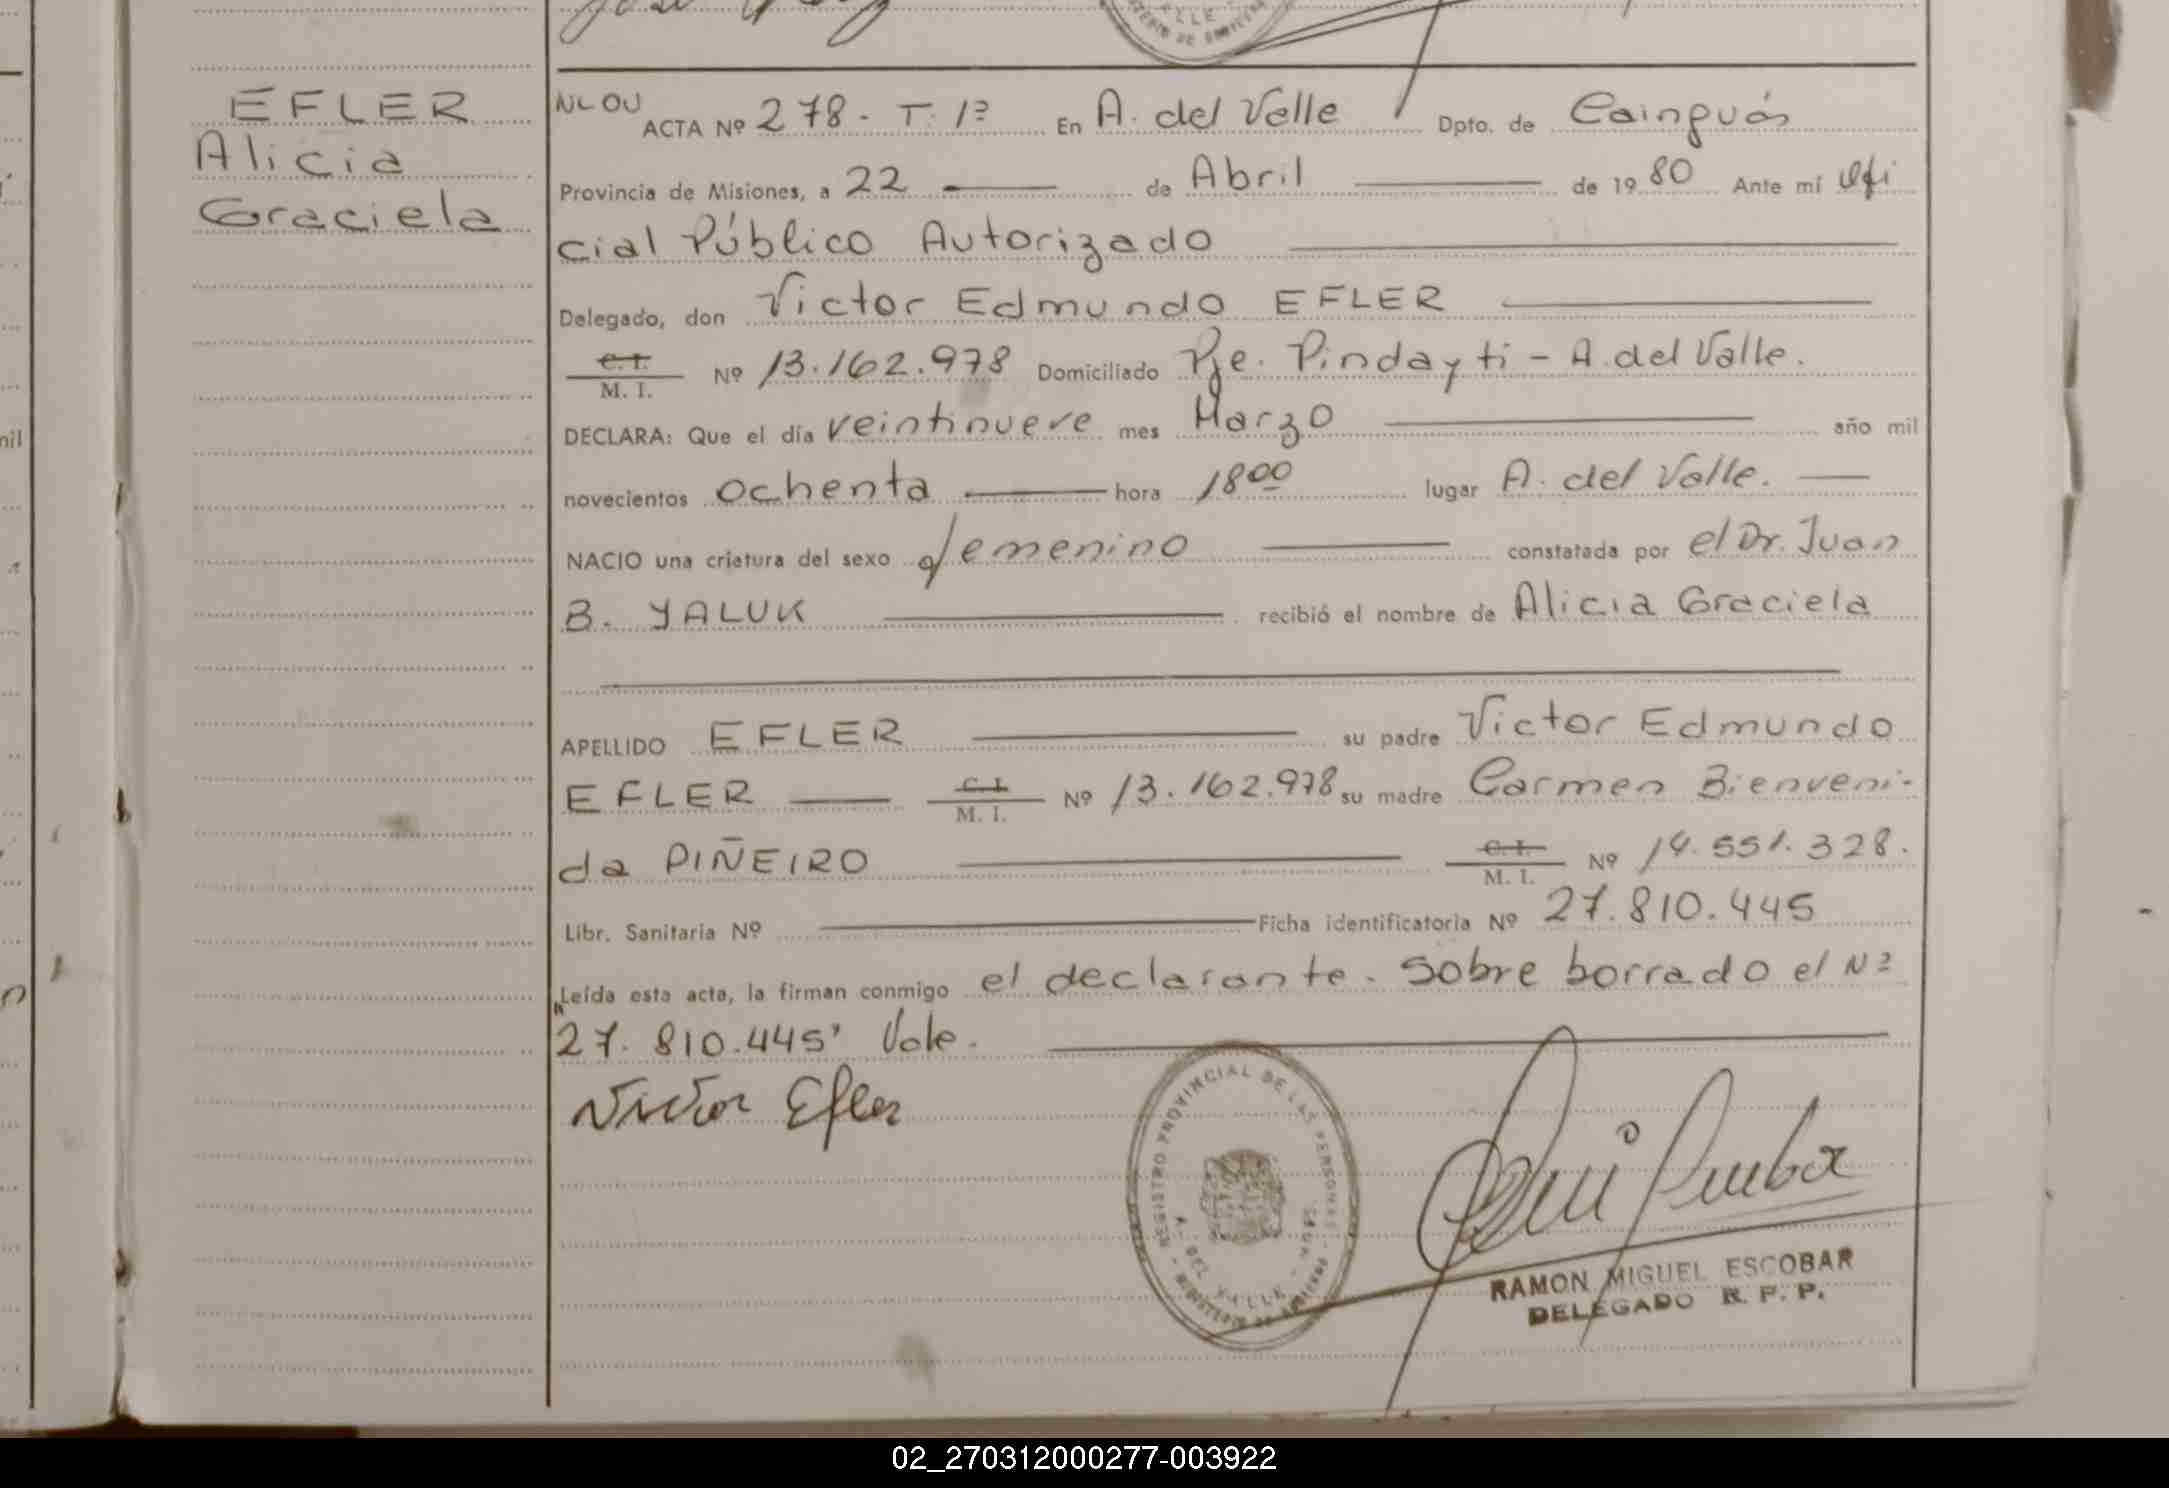 EFLER
Alicia
Graciela
NLOU
ACTA Nº 278 - T. 1º En A. del Valle Dpto. de Cainguás
Provincia de Misiones, a 22 de Abril de 1980 Ante mí Ofi
cial Público Autorizado
Delegado, don Victor Edmundo EFLER
C. I. / M. I. Nº 13.162.978 Domiciliado Pje. Pindayti - A. del Valle.
DECLARA: Que el día veintinueve mes Marzo año mil
novecientos ochenta hora 18 00 lugar A. del Valle.
NACIO una criatura del sexo femenino constatada por el Dr. Juan
B. YALUK recibió el nombre de Alicia Graciela
APELLIDO EFLER su padre Victor Edmundo
EFLER C. I. / M. I. Nº 13.162.978 su madre Carmen Bienveni-
da PIÑEIRO C. I. / M. I. Nº 14.551.328.
Libr. Sanitaria Nº Ficha identificatoria Nº 27.810.445
Leída esta acta, la firman conmigo el declarante. Sobre borrado el Nº
"27.810.445" Vale.
Victor Efler
REGISTRO PROVINCIAL DE LAS PERSONAS
A. DEL VALLE
RAMON MIGUEL ESCOBAR
DELEGADO R. P. P.
02_270312000277-003922